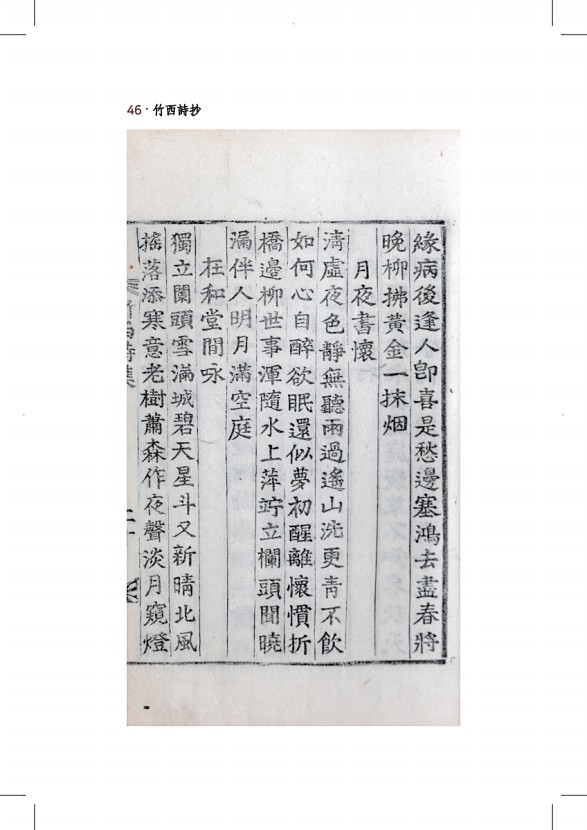 46 · 竹西詩抄
緣病後逢人卽喜是愁邊塞鴻去盡春將
晚柳拂黃金一抹烟
月夜書懷
淸虛夜色靜無聽雨過遙山洗更靑不飮
如何心自醉欲眠還似夢初醒離懷慣折
橋邊柳世事渾隨水上萍竚立欄頭聞曉
漏伴人明月滿空庭
枉和堂間咏
獨立闌頭雪滿城碧天星斗又新晴北風
搖落添寒意老樹蕭森作夜聲淡月窺燈
竹西詩集